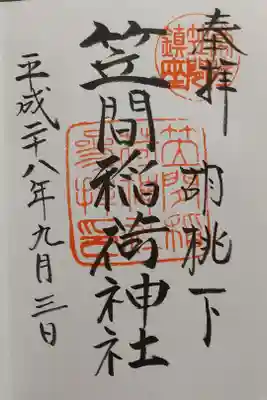 奉拝
胡桃下
笠間稲荷神社
平成二十八年九月三日